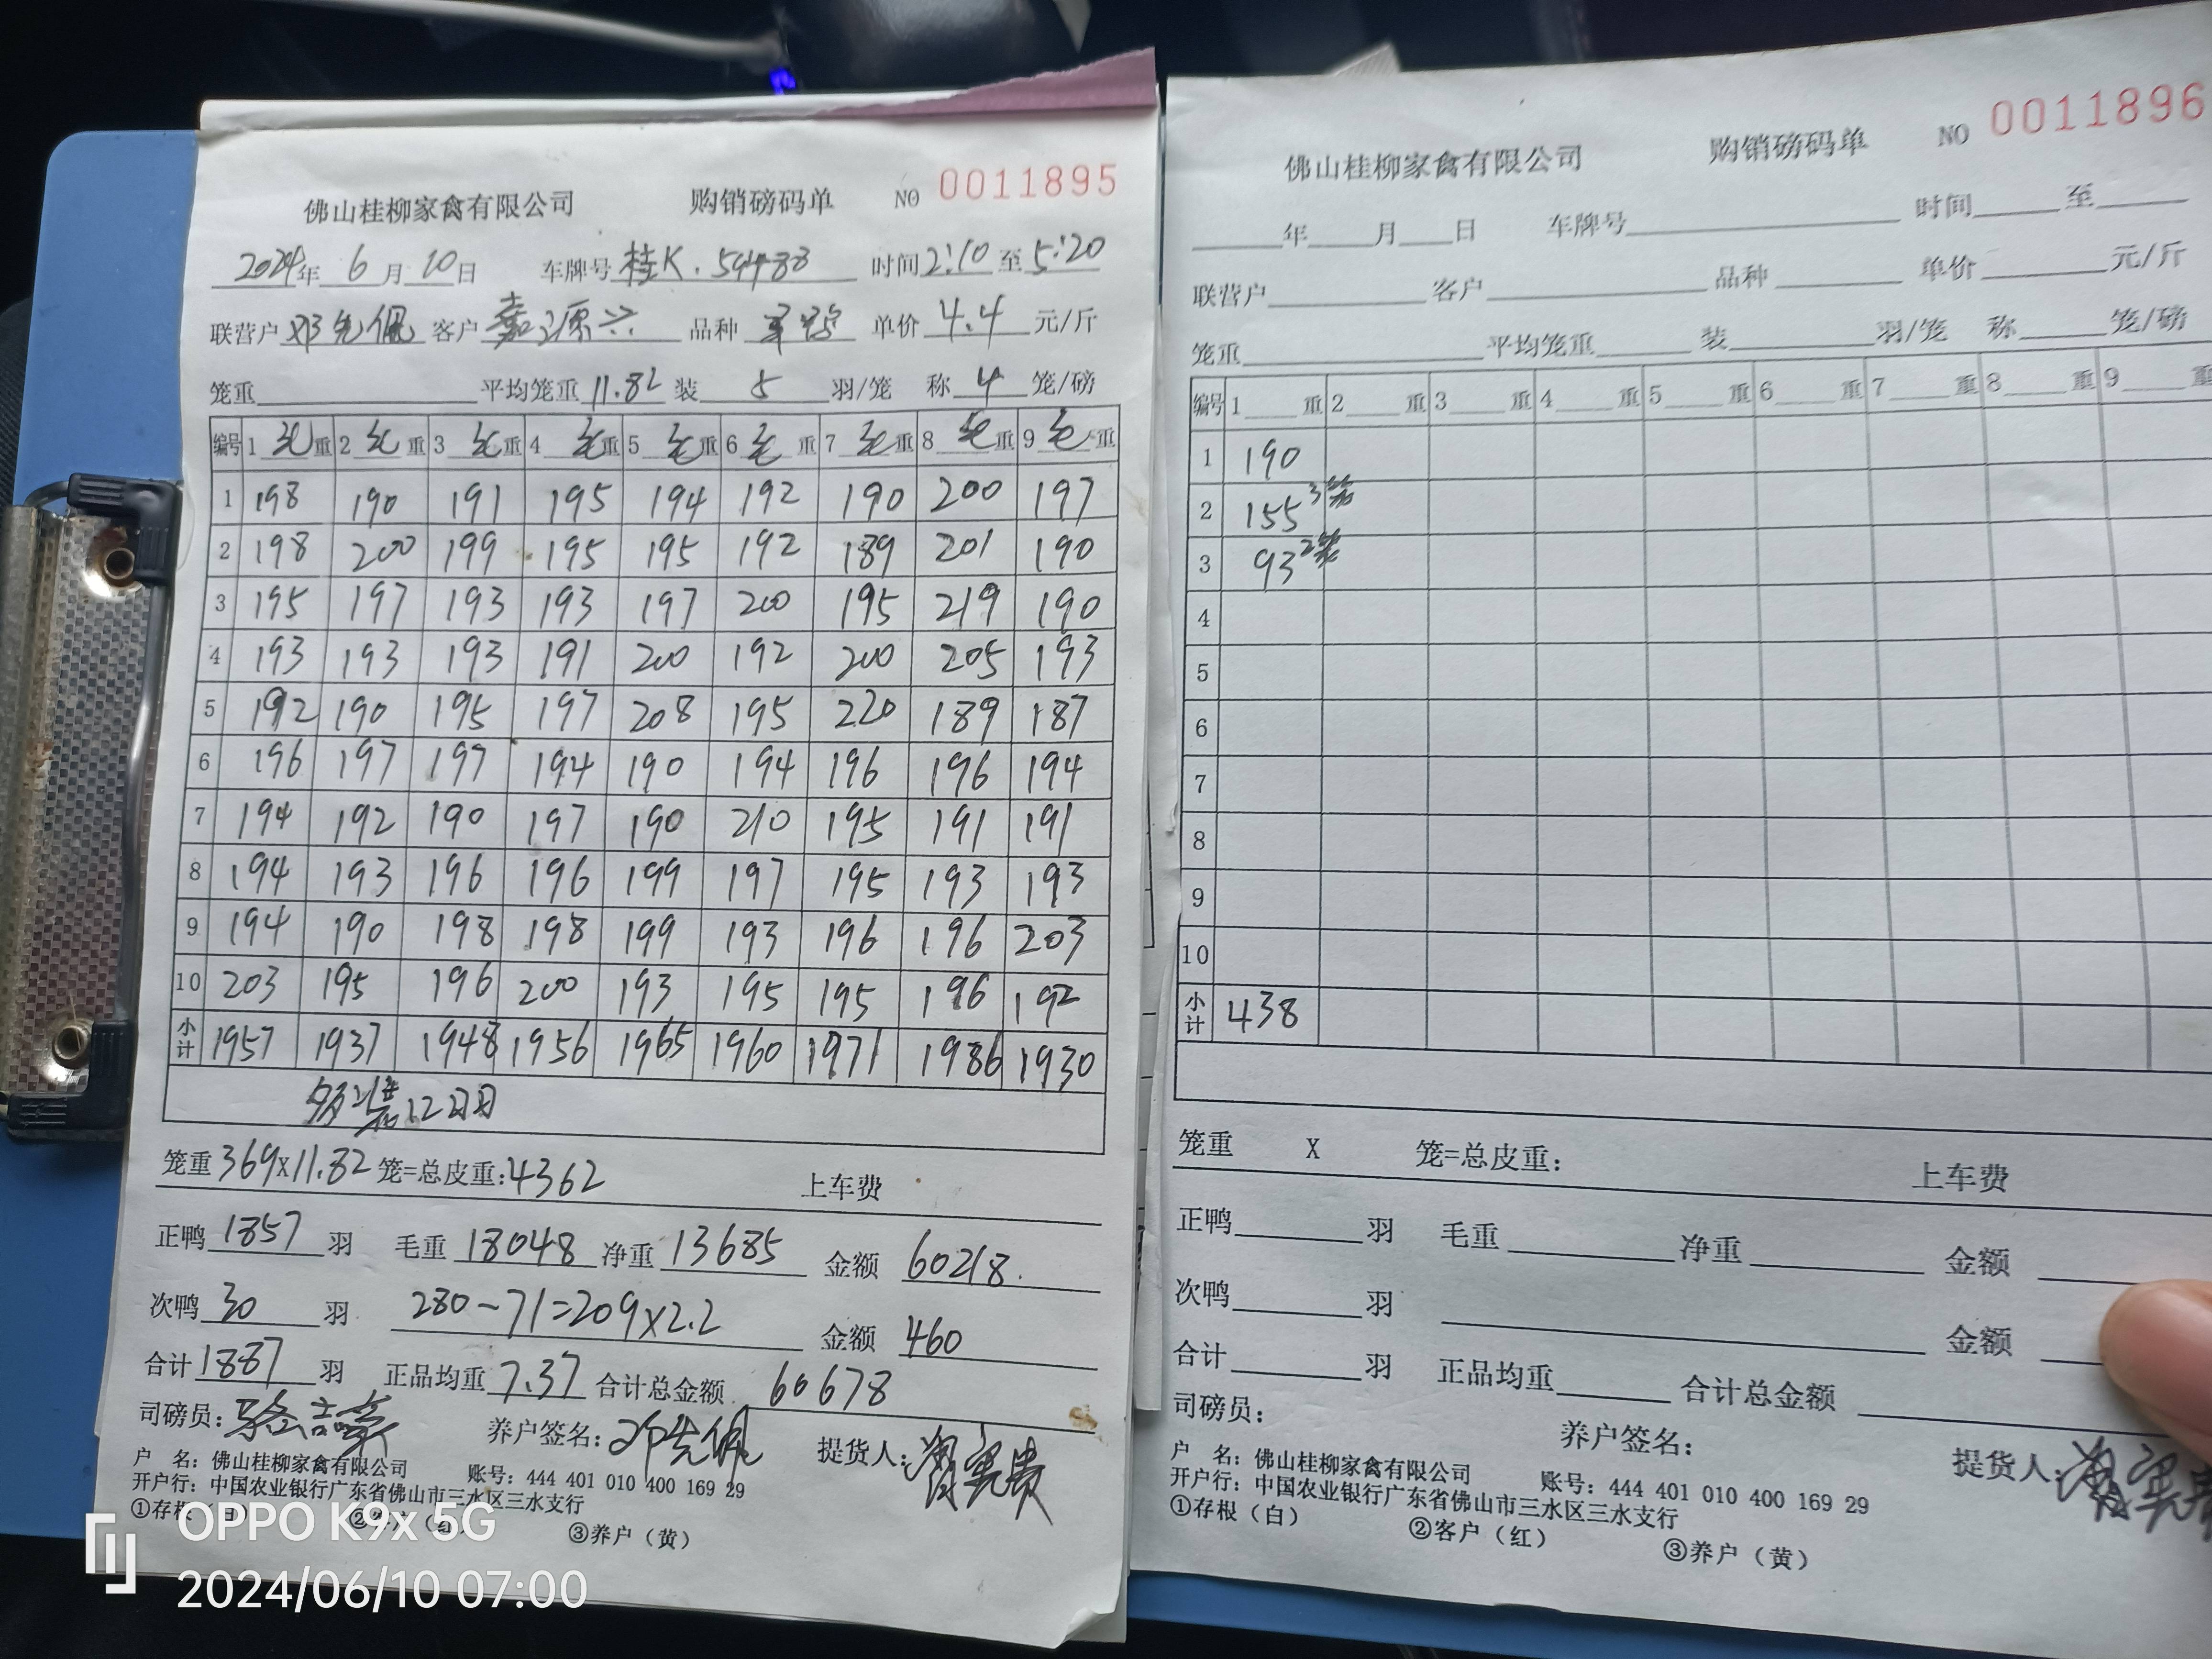 佛山桂柳家禽有限公司 购销磅码单 NO 0011895
2024年 6 月 10日 车牌号 桂K.59488 时间2:10 至5:20
联营户 邓先佩 客户 嘉源兴 品种 单价 4.4 元/斤
笼重 平均笼重 11.82 装 5 羽/笼 称 4 笼/磅
编号 1 毛重 2 毛重 3 毛重 4 毛重 5 毛重 6 毛重 7 毛重 8 毛重 9 毛重
1 198 190 191 195 194 192 190 200 197
2 198 200 199 195 195 192 189 201 190
3 195 197 193 193 197 200 195 219 190
4 193 193 193 191 200 192 200 205 193
5 192 190 195 197 208 195 220 189 187
6 196 197 197 194 190 194 196 196 194
7 194 192 190 197 190 210 195 191 191
8 194 193 196 196 199 197 195 193 193
9 194 190 198 198 199 193 196 196 203
10 203 195 196 200 193 195 195 196 192
小计 1957 1937 1948 1956 1965 1960 1971 1986 1930
多装12
笼重369X11.82 笼=总皮重:4362 上车费
正鸭 1857 羽 毛重 18048 净重 13685 金额 60218.
次鸭 30 羽 280-71=209X2.2 金额 460
合计 1887 羽 正品均重 7.37 合计总金额 60678
司磅员: 养户签名:邓先佩 提货人:
户 名:佛山桂柳家禽有限公司 账号:444 401 010 400 169 29
开户行:中国农业银行广东省佛山市三水区三水支行
①存根(白) ②客户(红) ③养户(黄)
OPPO K9x 5G
2024/06/10 07:00
佛山桂柳家禽有限公司 购销磅码单 NO 0011896
年 月 日 车牌号 时间 至
联营户 客户 品种 单价 元/斤
笼重 平均笼重 装 羽/笼 称 笼/磅
编号 1 重 2 重 3 重 4 重 5 重 6 重 7 重 8 重 9 重
1 190
2 155 3笼
3 93 2笼
4
5
6
7
8
9
10
小计 438
笼重 X 笼=总皮重: 上车费
正鸭 羽 毛重 净重 金额
次鸭 羽 金额
合计 羽 正品均重 合计总金额
司磅员: 养户签名: 提货人:
户 名:佛山桂柳家禽有限公司 账号:444 401 010 400 169 29
开户行:中国农业银行广东省佛山市三水区三水支行
①存根(白) ②客户(红) ③养户(黄)